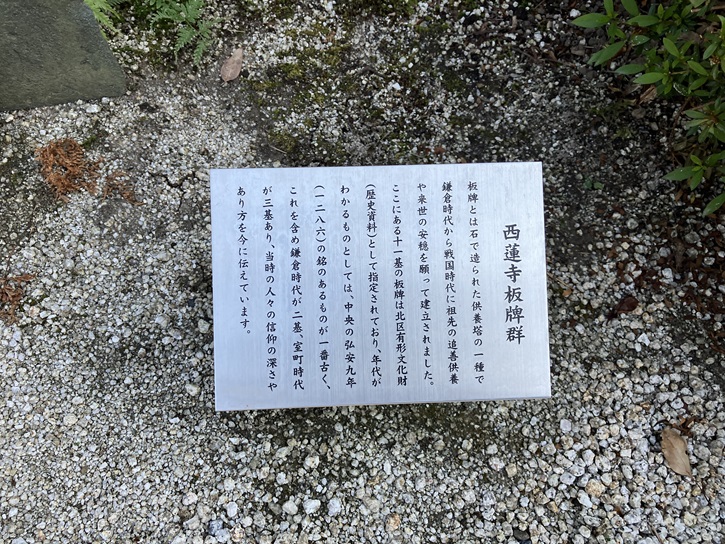 西蓮寺板碑群
板碑とは石で造られた供養塔の一種で
鎌倉時代から戦国時代に祖先の追善供養
や来世の安穏を願って建立されました。
ここにある十一基の板碑は北区有形文化財
(歴史資料)として指定されており、年代が
わかるものとしては、中央の弘安九年
(一二八六)の銘のあるものが一番古く、
これを含め鎌倉時代が二基、室町時代
が三基あり、当時の人々の信仰の深さや
あり方を今に伝えています。